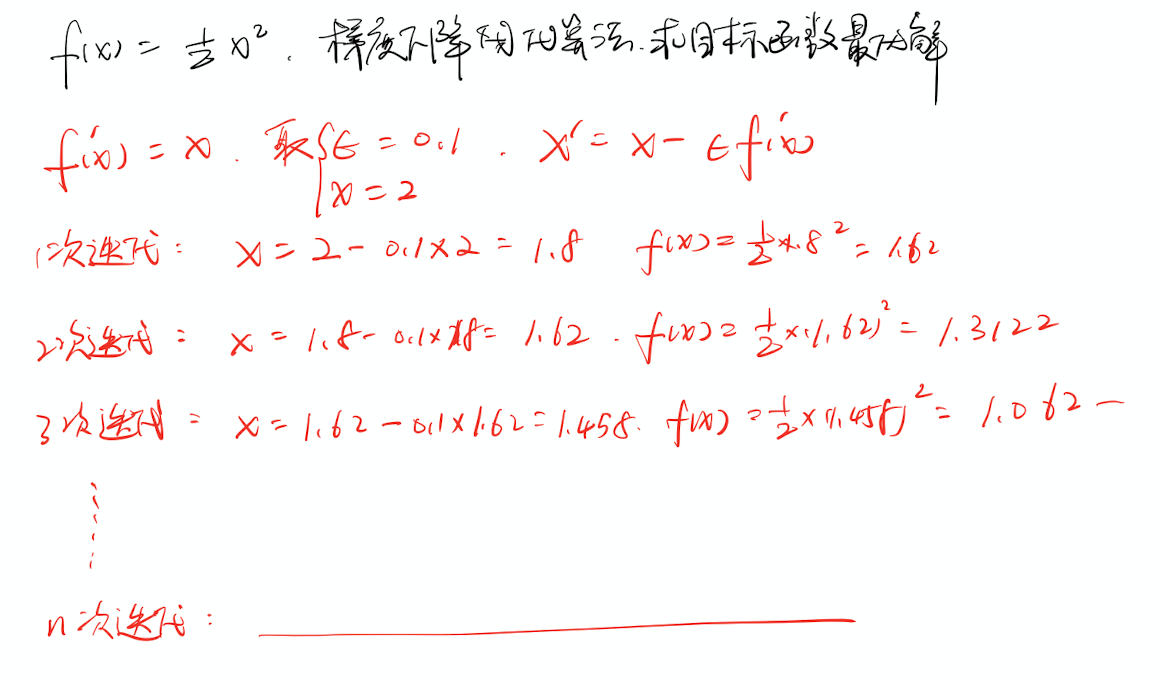 f(x) = 1/2 x². 梯度下降迭代算法.求目标函数最优解
f'(x) = x. 取{ϵ = 0.1 . x' = x - ϵf'(x)
x = 2
1次迭代: x = 2 - 0.1×2 = 1.8 f(x) = 1/2×1.8² = 1.62
2次迭代: x = 1.8 - 0.1×1.8 = 1.62 . f(x) = 1/2×(1.62)² = 1.3122
3次迭代: x = 1.62 - 0.1×1.62 = 1.458. f(x) = 1/2×(1.458)² = 1.062 —
n次迭代: